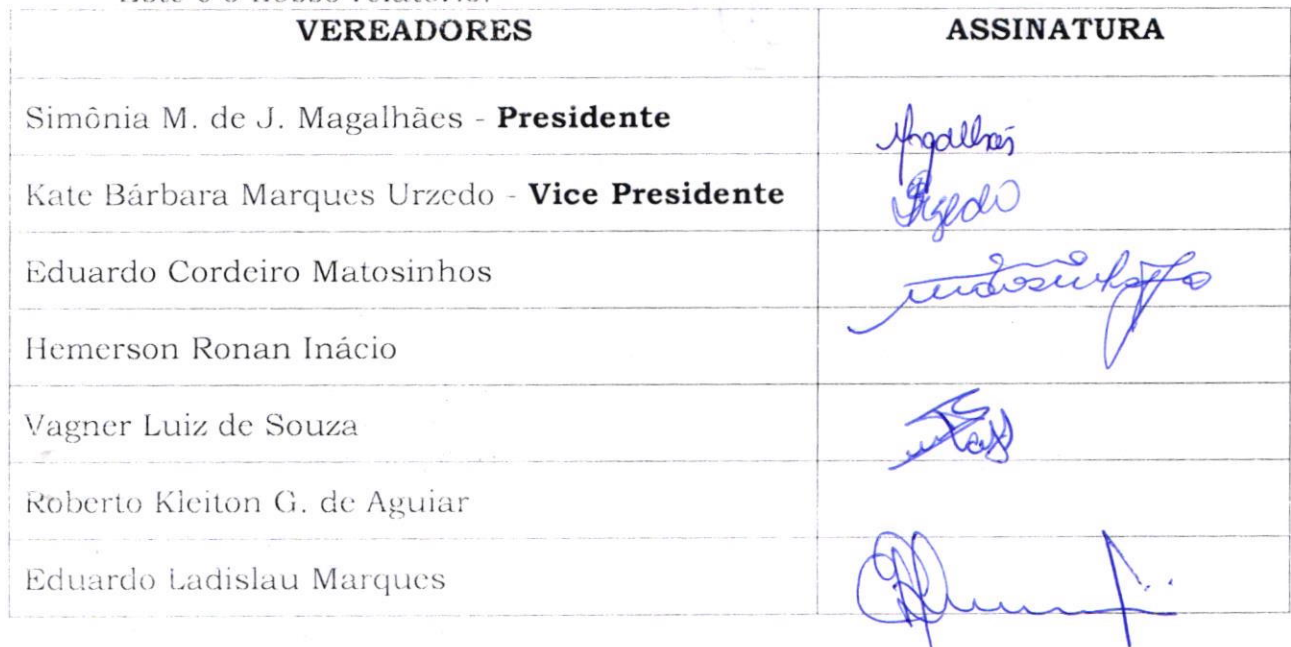 Este é o nosso relatório.
VEREADORES ASSINATURA
Simônia M. de J. Magalhães - Presidente Magalhães
Kate Bárbara Marques Urzedo - Vice Presidente Urzedo
Eduardo Cordeiro Matosinhos
Hemerson Ronan Inácio
Vagner Luiz de Souza
Roberto Kleiton G. de Aguiar
Eduardo Ladislau Marques